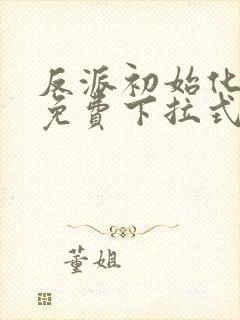 反派初始化
免費下拉式
董姐